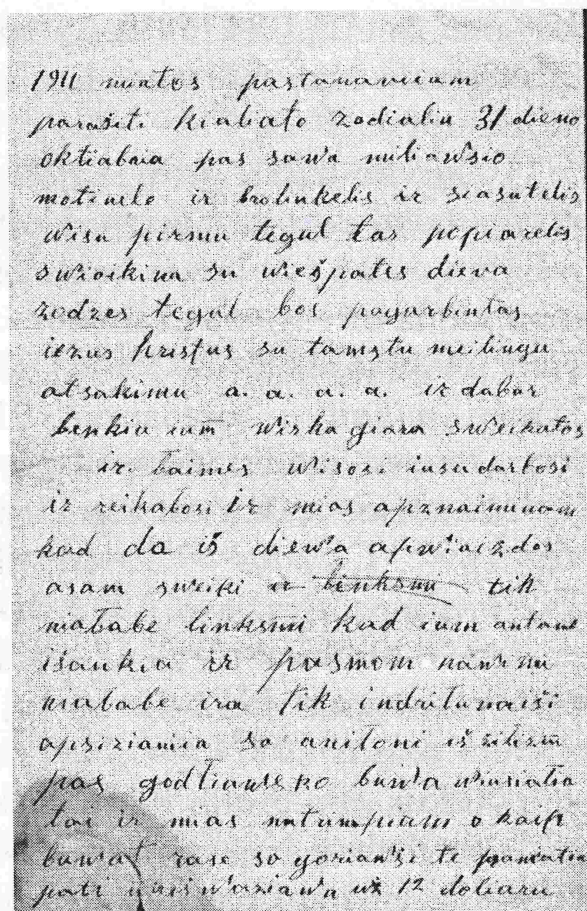 1911 miatos pastanaviam
parašiti kiabiato zodialiu 31 dieno
oktiabria pas sawa miliawsio
motinele ir brolinkelis ir siasutelis
wisu pirmu tegul tas popiarelis
swieikina su wiešpates dieva
zodzes tegul bos pagarbintas
iezus kristus su tamstu meilingu
atsakimu a. a. a. a. ir dabar
linkiu ium wiska giara sweikatos
ir łaimes wisosi iusu darbosi
ir reikalosi ir mias apznaiminam
kad da iš diewa apwiaizdos
asam sweiki ir linksmi tik
niałabe linksmi kad ium antane
išaukia ir pasmom
niałabe ira tik
apsizianiia so iš
pas buwa
tai ir mias o kaip
buwat rase so te
pati už 12 doliaru